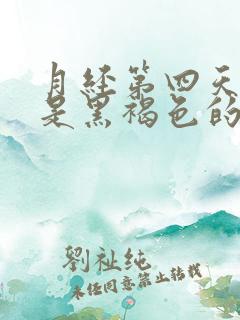 月经第四天
是黑褐色的
劉祉纯
未经同意禁止转载